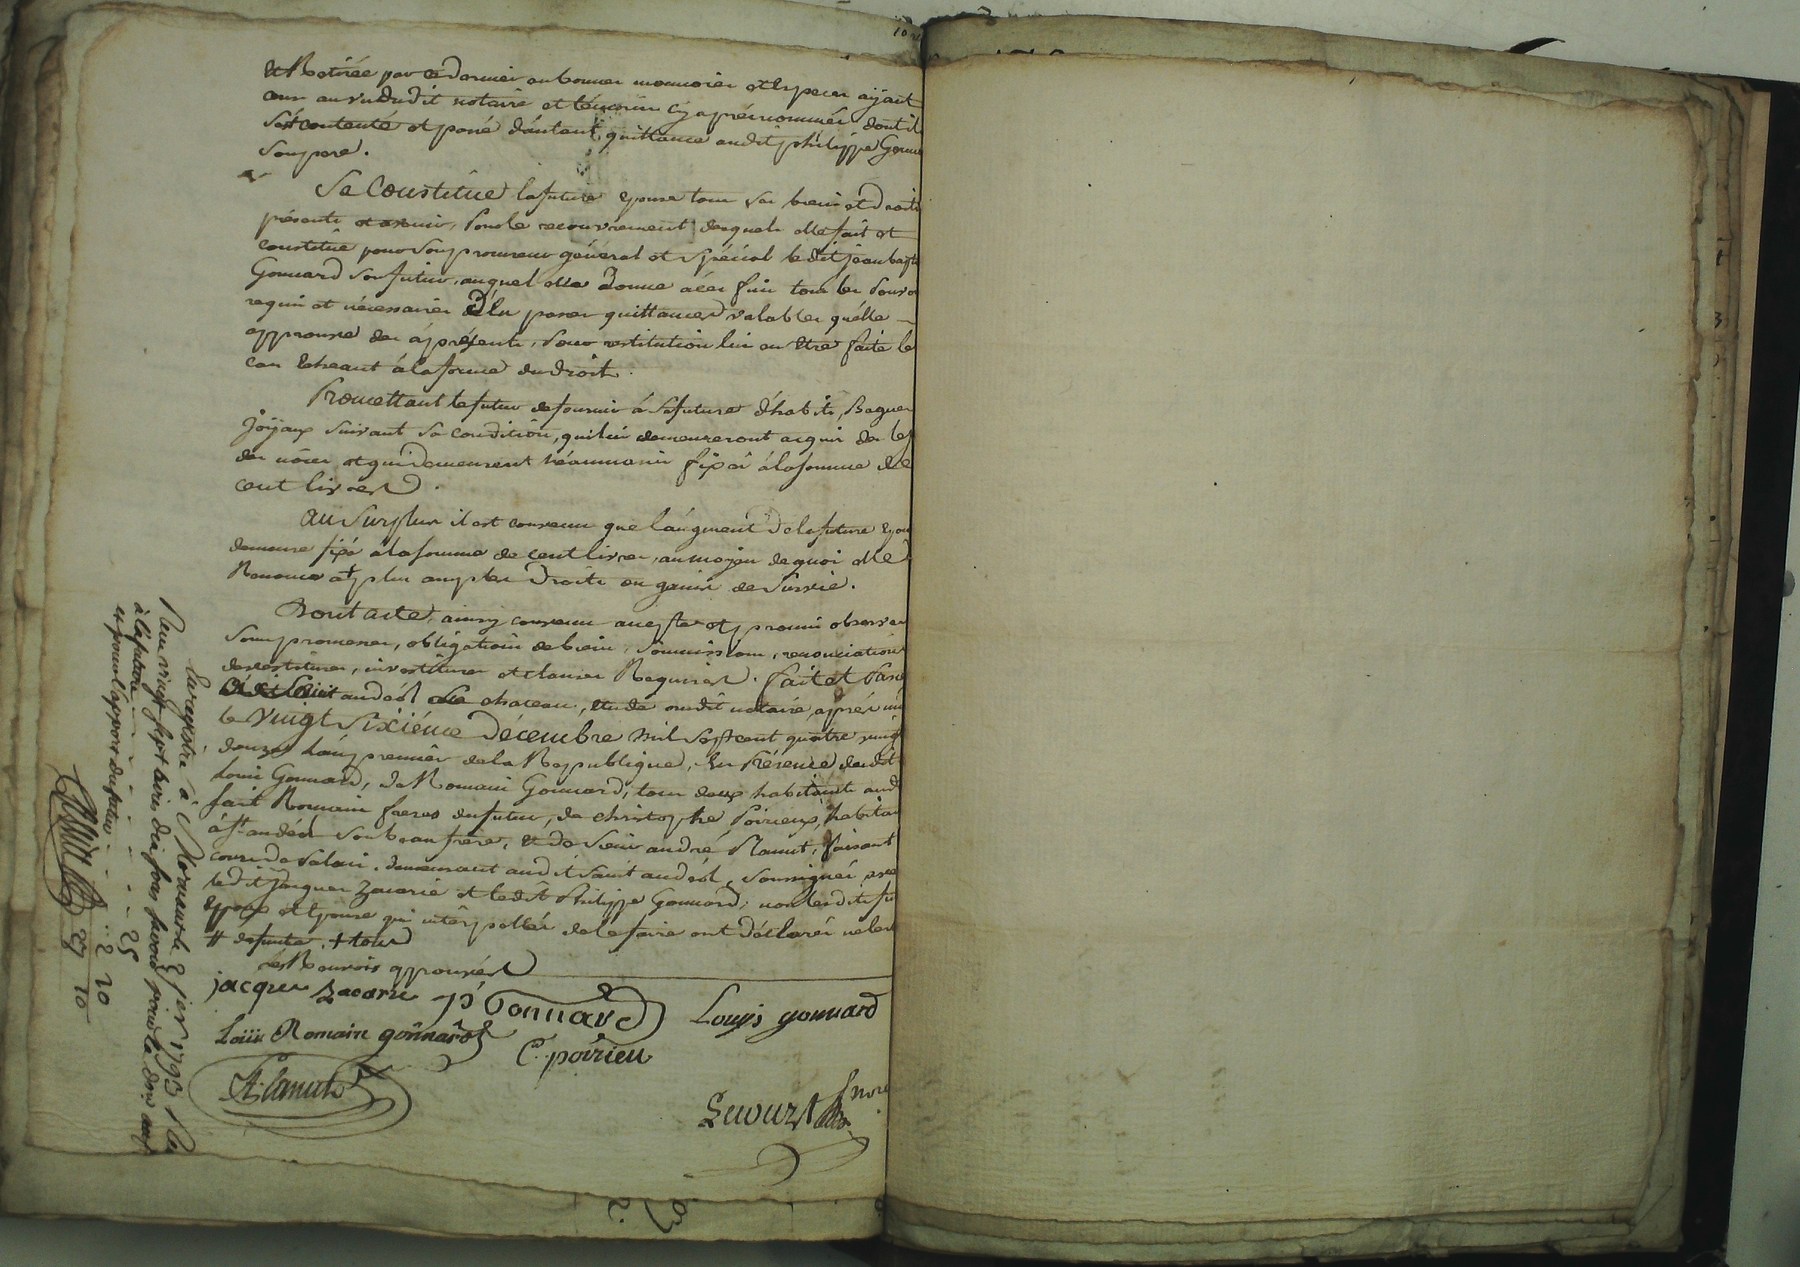 et Retirée par ce dernier en bonnes monnoies et especes aÿant
cour au vu dudit notaire et témoins cy après nommés dont il
s'est contenté et passé d'autant quittance audit philippe Gonna
son pere.
Se Constitue la future epouse tous ses biens et droits
présents et avenir, pour le recouvrement desquels elle fait et
constitue pour son procureur général et spécial ledit jean bapt
Gonnard son futur, auquel elle donne à ces fins tous les pouvo
requis et nécessaires de les passer quittances valables qu'elle
approuve des àprésents, sous restitution lui en être faite le
cas echeant à la forme du droit.
Promettant le futur de fournir à sa future d'habits, Bagues
joÿaux suivant sa condition, qui lui demeureront acquis des le j
des nôces et qui demeurent néanmoins fixés à la somme de
cent livres.
au surplus il est convenu que l'augment de la future epou
demeure fixé à la somme de cent livres, au moyen de quoi elle
Renonce à plus amples droits ou gains de survie.
Dont acte, ainsy convenu accepté et promis observer
sous promesses, obligation de biens, soumissions, renonciations
devestitures, investitures et clauses Requises. fait et Passé
audéol le chateau, etude dudit notaire, après mi
le vingt sixiéme décembre mil sept cent quatre vingt
douze l'an premier de la Republique, En Présence dudit
Louis Gonnard, de Romain Gonnard, tous deux habitants aud
fait Romain freres du futur, de christophe Poirieux, habitan
à st andéol son beau frere, et de sieur andré Flanut, faisant
demeurant audit saint andéol, soussignés avec
ledit Jacques Zacarie et ledit Philippe Gonnard, non lesdits fu
epoux et epouse qui interpellés de le faire ont déclarés ne les
# defunte. + tous
les Renvois approuvés
jacques Zacarie
P Gonnard
Louys gonnard
Louis Romain gonnard
C. poirieu
not
Enregistré à Mornant le 2 jer 1793 Re
vingt sept livres dix sous savoir pour le don
à la future - - - - - 25
et pour l'apport du futur - - 2 10
27 10